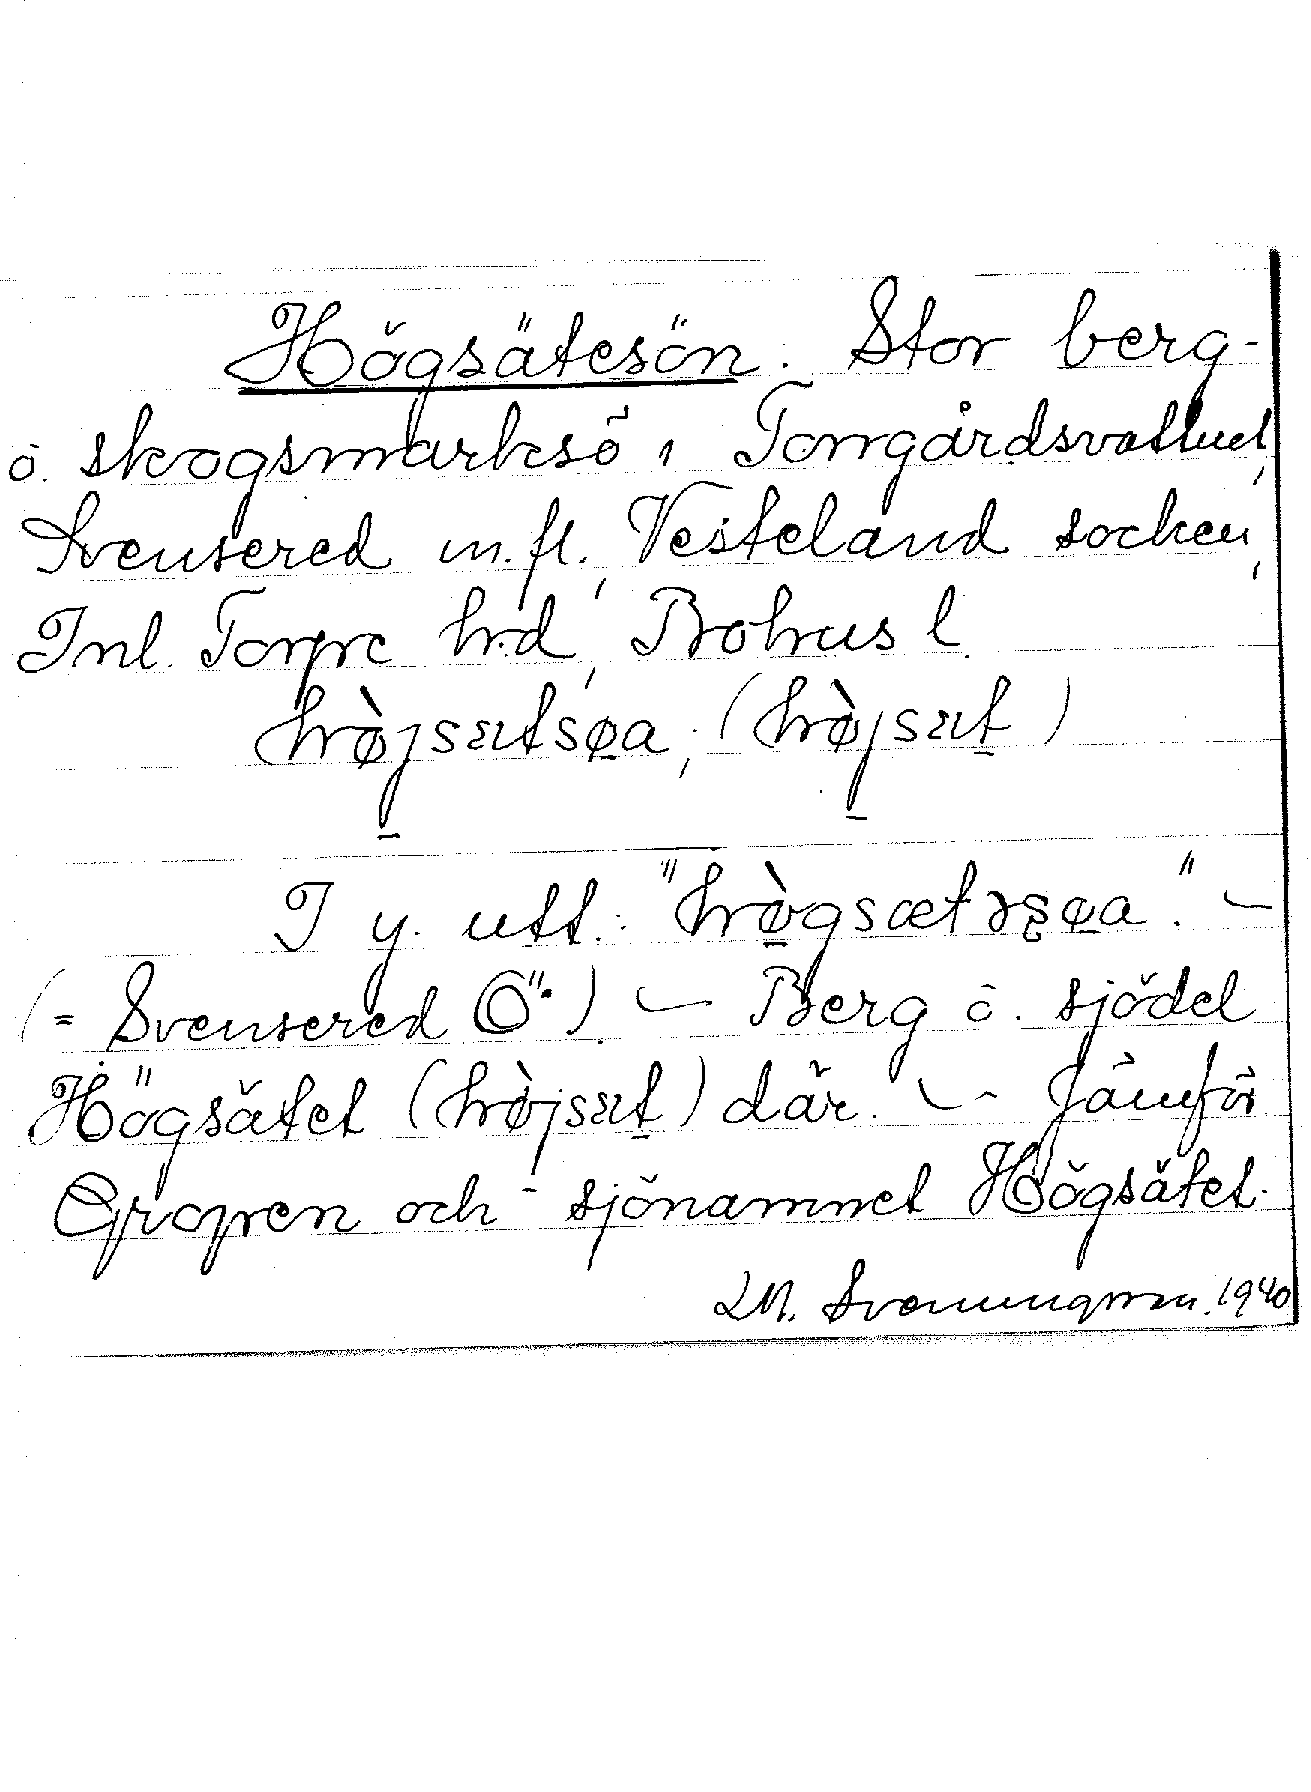 Högsätesön. Stor berg-
o. skogsmarksö i Torrgårdsvattnet,
Svensered m.fl., Vesterland socken,
Inl. Torpe hrd, Bohus l.
hø̀jsætsøa; (hø̀jsæt)
I y. utt.: "hø̀gsætəsøa." –
(= Svensered Ö".) – Berg o. sjödel
Högsätet (hø̀jsæt) där. – Jämför
Gropen och sjönamnet Högsätet.
1940